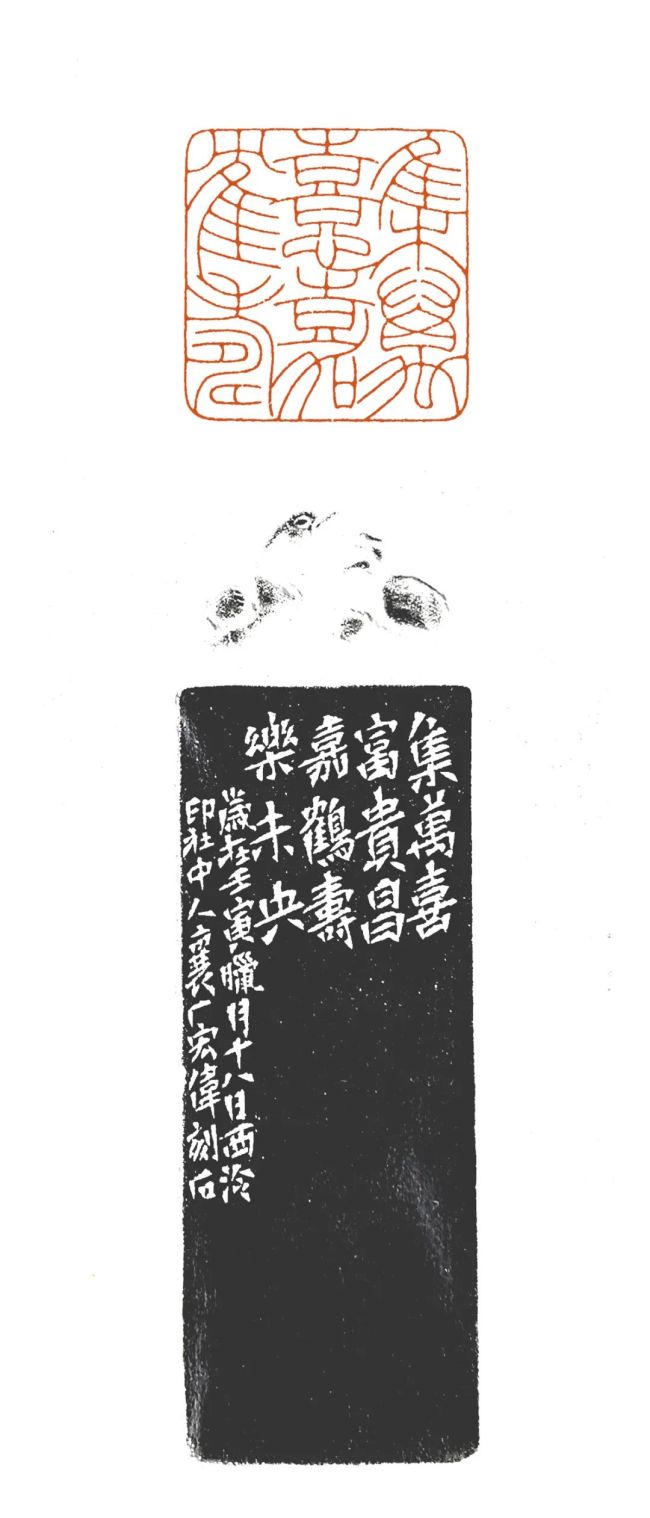 集萬
喜嘉
集萬喜
富貴昌
嘉鶴壽
樂未央
歲在壬寅臘月十八日西泠
印社中人襄厂宏偉刻石